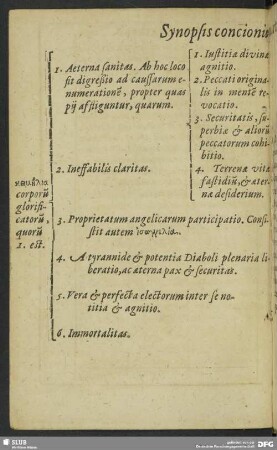 Synopsis concionū
1. Aeterna sanitas. Ab hoc loco
fit digressio ad caussarum e-
numerationē, propter quas
pij affliguntur, quarum.
1. Iustitia divinæ
agnitio.
2. Peccati origina-
lis in mentē re-
vocatio.
3. Securitatis, su-
perbiæ & aliorū
peccatorum cohi-
bitio.
4. Terrenæ vitæ
fastidiū, & æter-
næ desiderium.
2. Ineffabilis claritas.
corporū
glorifi-
catorū,
quorū
1. est.
3. Proprietatum angelicarum participatio. Consi-
stit autem
4. A tyrannide & potentia Diaboli plenaria li-
beratio, ac æterna pax & securitas.
5. Vera & perfecta electorum inter se no-
titia & agnitio.
6. Immortalitas.
SLUB
DFG